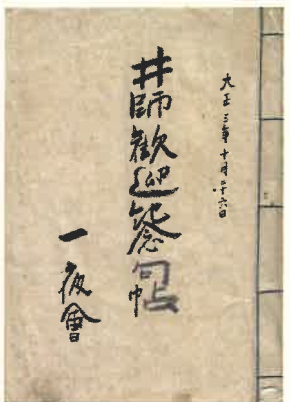 大正三年十月二十六日
井師歓迎紀念句帖
一夜會